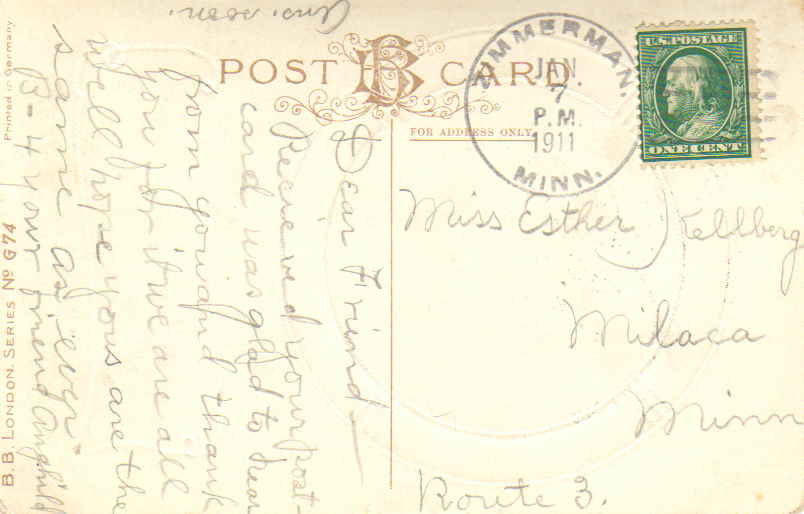 POST CARD
BB
FOR ADDRESS ONLY.
ZIMMERMAN.
JAN.
7
P.M.
1911
MINN.
U.S. POSTAGE
ONE CENT
Miss Esther Kellberg
Milaca
Minn
Route 3.
Dear Friend
Recieved your post-
card was glad to hear
from you and thank
you for it we are all
well hope yous are the
same as ever
B-4 your friend
Printed in Germany
B.B. LONDON. SERIES No G74